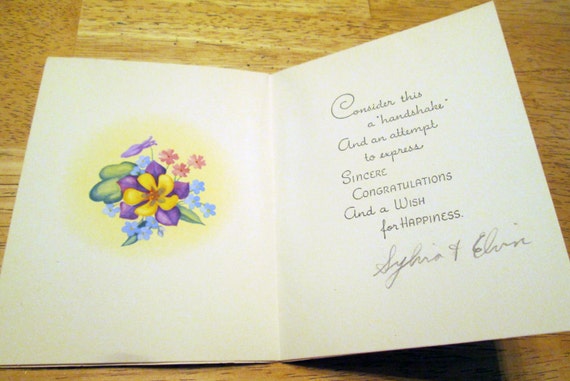 Consider this
a "handshake"
And an attempt
to express
Sincere
Congratulations
And a Wish
for Happiness.
Sylvia & Elvin